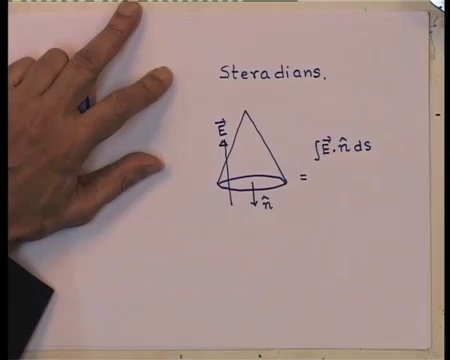 Steradians.
E⃗
∫E⃗·n̂ ds
=
n̂